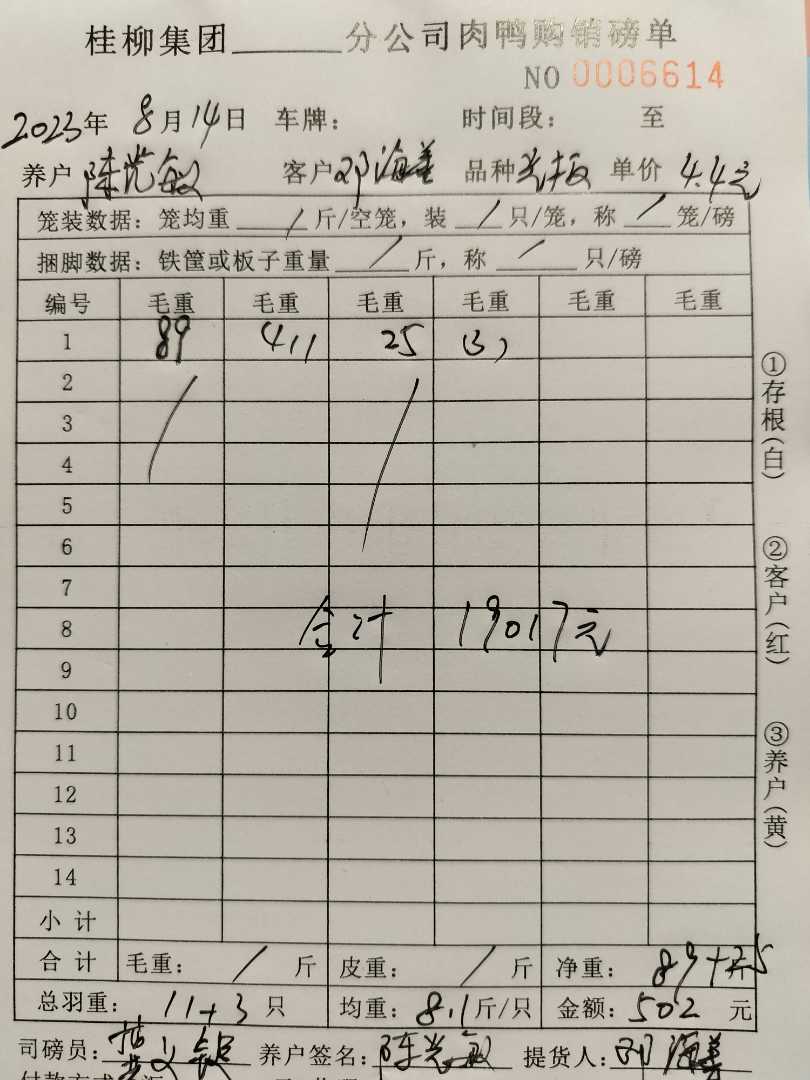 桂柳集团______分公司肉鸭购销磅单
NO 0006614
2023年 8月14日 车牌: 时间段: 至
养户 陈光敏 客户 邓海姜 品种 光板 单价 4.4元
笼装数据: 笼均重 / 斤/空笼, 装 / 只/笼, 称 / 笼/磅
捆脚数据: 铁筐或板子重量 / 斤, 称 / 只/磅
编号 毛重 毛重 毛重 毛重 毛重 毛重
1 89 411 25 (3)
2
3
4
5
6
7
8
合计 19017元
9
10
11
12
13
14
小计
合计 毛重: / 斤 皮重: / 斤 净重: 89+25
总羽重: 11+3 只 均重: 8.1斤/只 金额: 502 元
司磅员: 养户签名: 陈光敏 提货人: 邓海姜
①存根(白)
②客户(红)
③养户(黄)